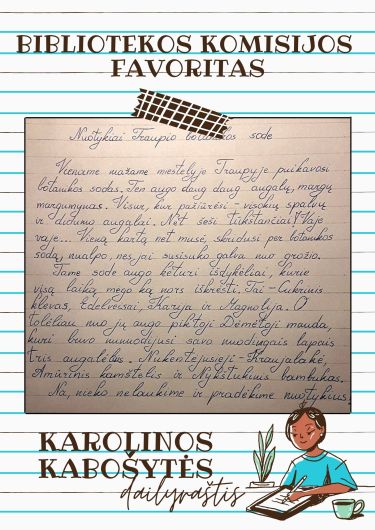 BIBLIOTEKOS KOMISIJOS
FAVORITAS
Nuotykiai Traupio botanikos sode
Viename mažame miestelyje Traupyje puikavosi
botanikos sodas. Ten augo daug daug augalų, margų
margumynas. Visur, kur pažiūrėsi - visokių spalvų
ir didumo augalai. Net šeši tūkstančiai! Vaje
vaje... Vieną kartą net musė, skridusi per botanikos
sodą, nualpo, nes jai susisuko galva nuo grožio.
Tame sode augo keturi išdykėliai, kurie
visą laiką mėgo ką nors iškrėsti. Tai - Cukrinis
klevas, Edelveisai, Karija ir Magnolija. O
tolėliau nuo jų augo piktoji Dėmėtoji mauda,
kuri buvo nunuodijusi savo nuodingais lapais
tris augalėlius. Nukentėjusieji - Kraujalakė,
Amūrinis kamštelis ir Nykštukinis bambukas.
Na, nieko nelaukime ir pradėkime nuotykius.
KAROLINOS
KABOŠYTĖS
dailyraštis